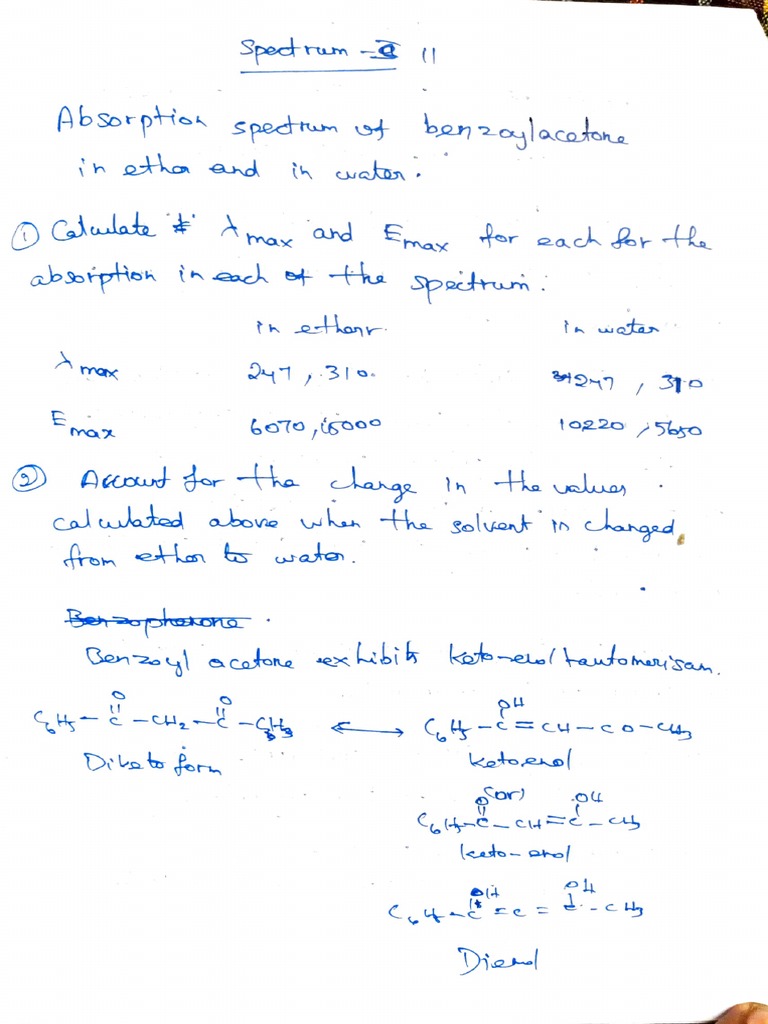 Spectrum - 11
Absorption spectrum of benzoylacetone
in ethor and in water.
① Calculate λ max and E max for each for the
absorption in each of the spectrum:
in ethanr. in water
λ max 247, 310. 247, 310
E max 6070, 15000 10220, 5650
② Account for the change in the values
calculated above when the solvent in changed
from ethor to water.
Benzophenone.
Benzoyl acetone exhibits keto-enol tautomerism.
O O OH
C6H5 - C - CH2 - C - CH3 ⟷ C6H5 - C = CH - CO - CH3
Diketo form Keto, enol
(or)
O OH
C6H5 - C - CH = C - CH3
keto - enol
OH OH
C6H - C = C = C - CH3
Dienol